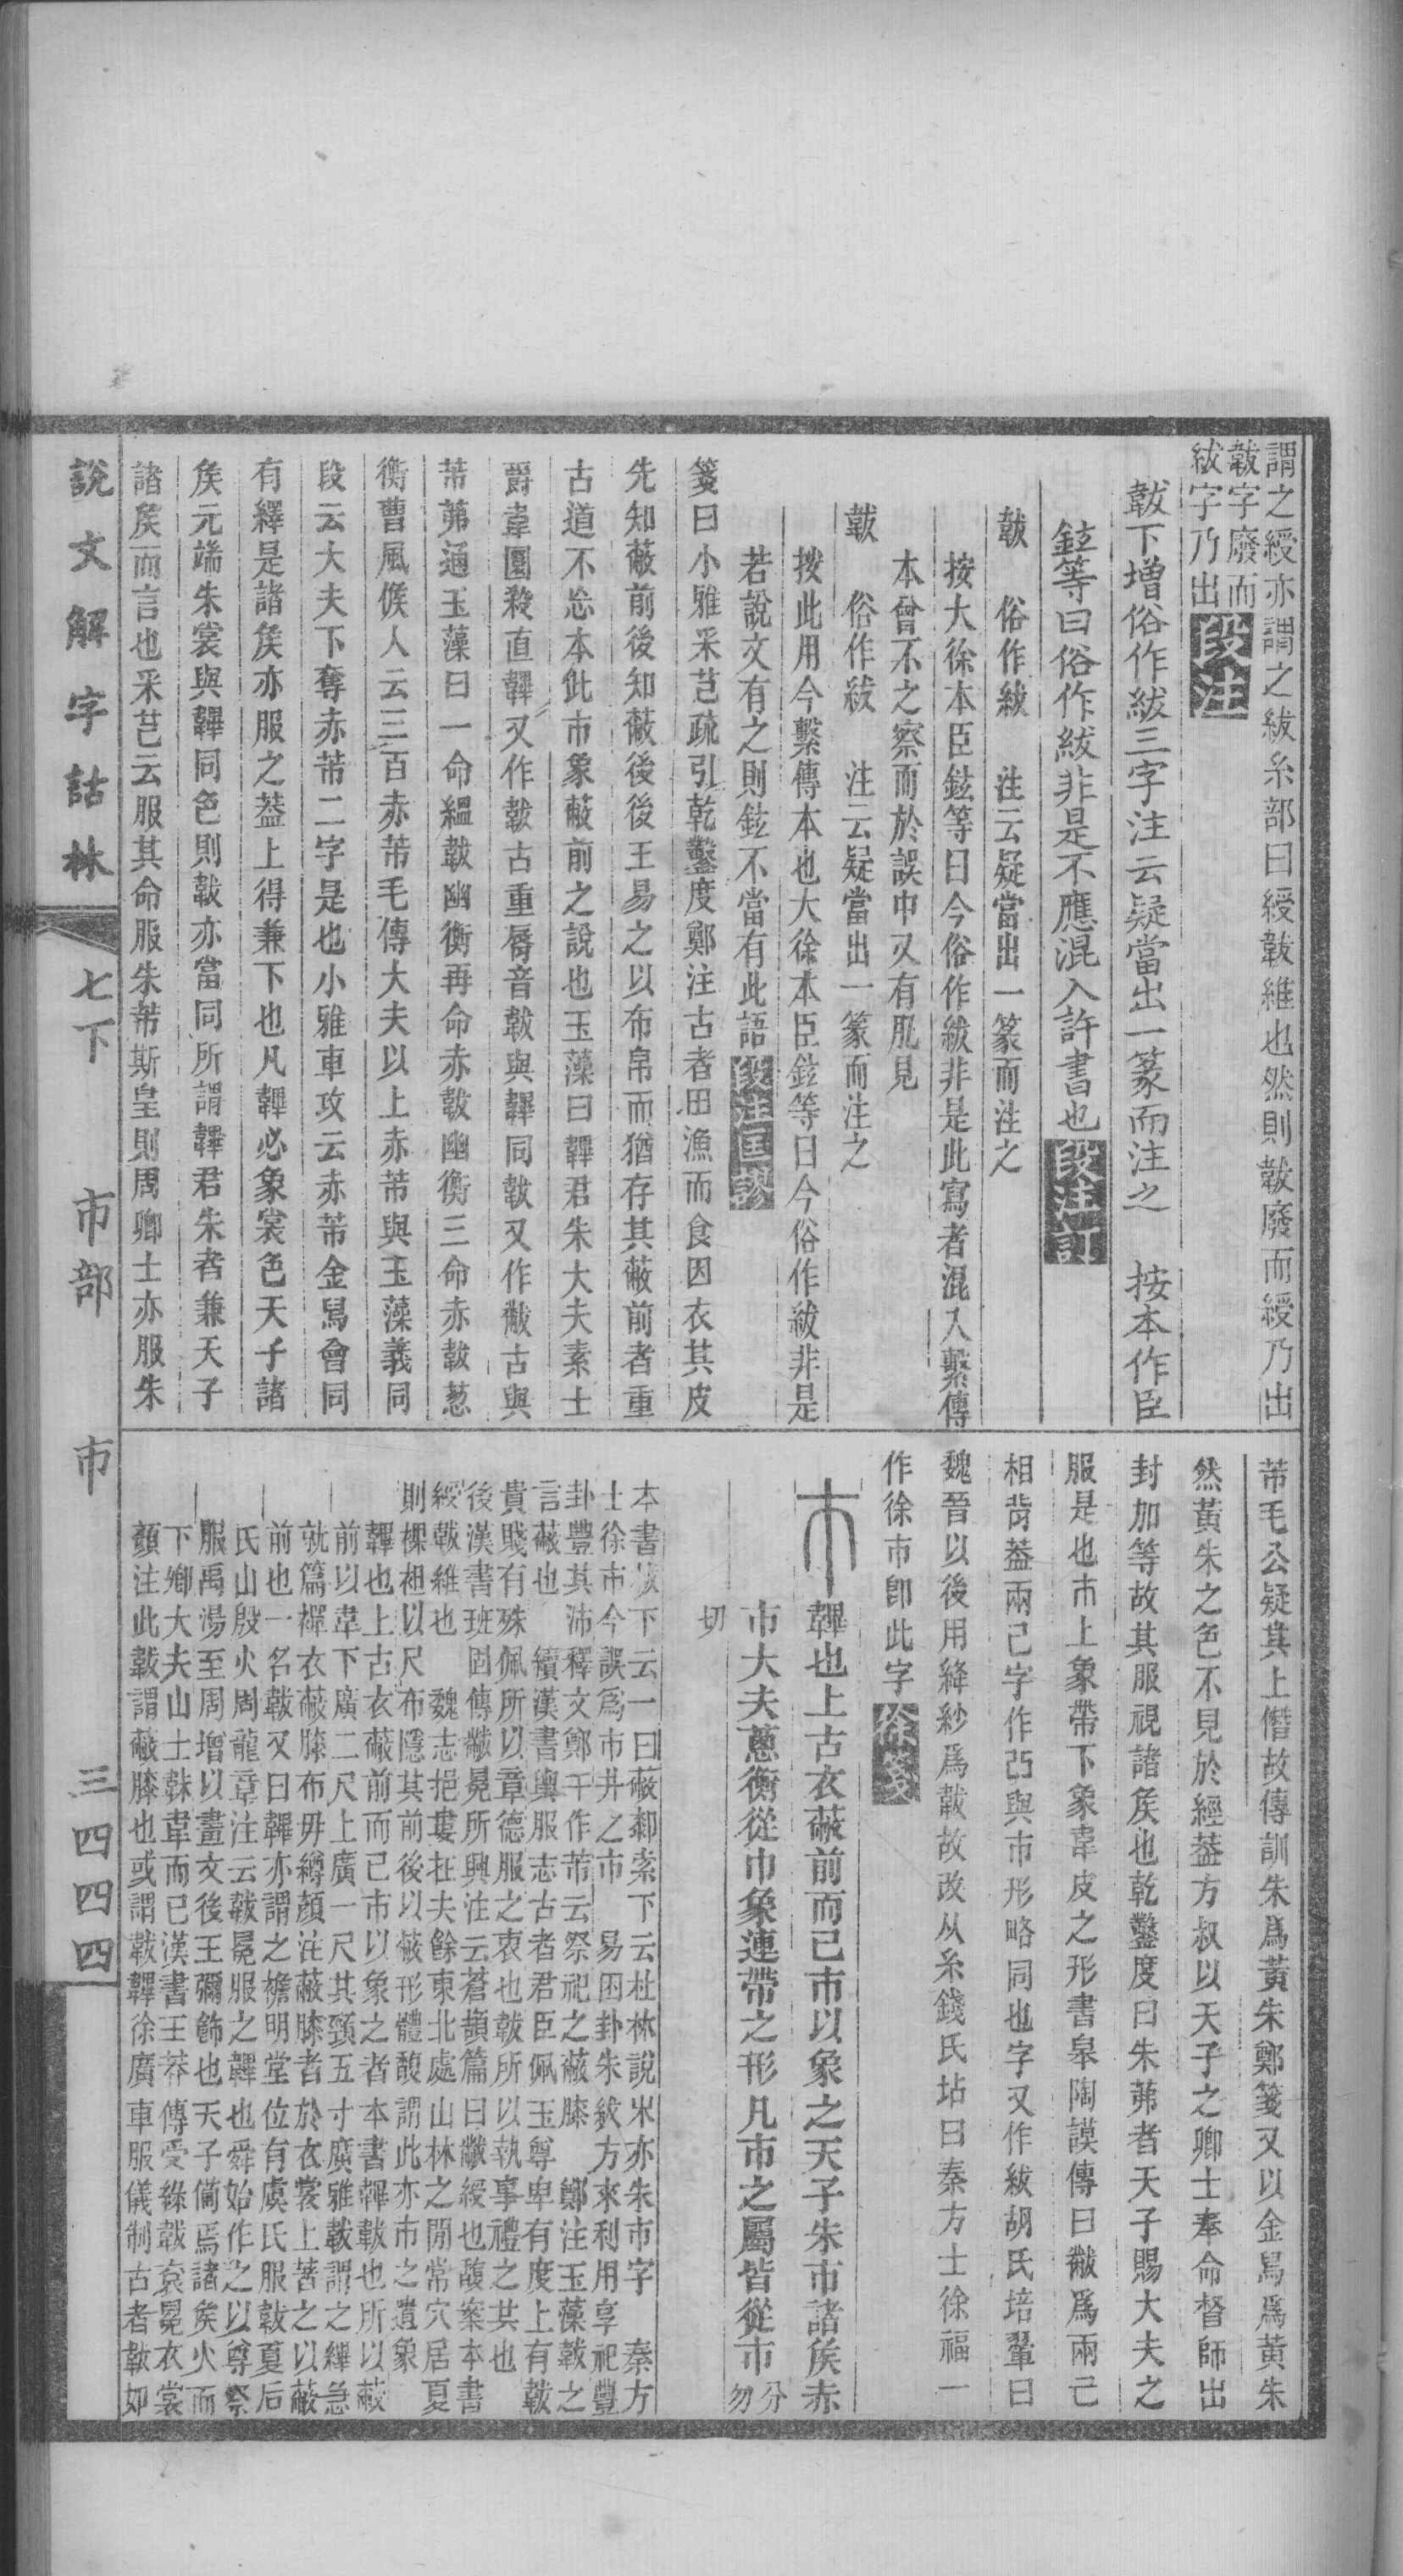 謂之綬亦謂之紱糸部曰綬韍維也然則韍廢而綬乃出
韍字廢而
紱字乃出段注
韍下增俗作紱三字注云疑當出一篆而注之　按本作臣
鉉等曰俗作紱非是不應混入許書也段注訂
韍　俗作紱　注云疑當出一篆而注之
按大徐本臣鉉等曰今俗作紱非是此寫者混入繫傳
本曾不之察而於誤中又有肊見
韍　俗作紱　注云疑當出一篆而注之
按此用今繫傳本也大徐本臣鉉等曰今俗作紱非是
若說文有之則鉉不當有此語段注匡謬
箋曰小雅采芑疏引乾鑿度鄭注古者田漁而食因衣其皮
先知蔽前後知蔽後後王易之以布帛而猶存其蔽前者重
古道不忘本此巿象蔽前之說也玉藻曰韠君朱大夫素士
爵韋圜殺直韠又作韍古重脣音韍與韠同韍又作黻古與
芾茀通玉藻曰一命縕韍幽衡再命赤韍幽衡三命赤韍葱
衡曹風候人云三百赤芾毛傳大夫以上赤芾與玉藻義同
段云大夫下奪赤芾二字是也小雅車攻云赤芾金舄會同
有繹是諸矦亦服之葢上得兼下也凡韠必象裳色天子諸
矦元端朱裳與韠同色則韍亦當同所謂韠君朱者兼天子
諸矦而言也采芑云服其命服朱芾斯皇則周卿士亦服朱
芾毛公疑其上僭故傳訓朱爲黃朱鄭箋又以金舄爲黃朱
然黃朱之色不見於經葢方叔以天子之卿士奉命督師出
封加等故其服視諸矦也乾鑿度曰朱茀者天子賜大夫之
服是也巿上象帶下象韋皮之形書皋陶謨傳曰黻爲兩己
相背葢兩己字作㔾與巿形略同也字又作紱胡氏培翬曰
魏晉以後用絳紗爲韍故改从糸錢氏坫曰秦方士徐福一
作徐巿卽此字徐箋
巿韠也上古衣蔽前而已巿以象之天子朱巿諸矦赤
巿大夫蔥衡從巾象連帶之形凡巿之屬皆從巿分勿
切
本書㞕下云一曰蔽䣛索下云杜林說𣎵亦朱巿字　秦方
士徐巿今誤爲市井之市　易困卦朱紱方來利用享祀豐
卦豐其沛釋文鄭干作芾云祭祀之蔽膝　鄭注玉藻韍之
言蔽也　續漢書輿服志古者君臣佩玉尊卑有度上有韍
貴賤有殊佩所以章德服之衷也韍所以執事禮之共也
後漢書班固傳黻冕所興注云蒼頡篇曰黻綬也馥案本書
綬韍維也　魏志挹婁在夫餘東北處山林之閒常穴居夏
則裸袒以尺布隱其前後以蔽形體馥謂此亦巿之遺象
韠也上古衣蔽前而已巿以象之者本書韠韍也所以蔽
前以韋下廣二尺上廣一尺其頸五寸廣雅韍謂之縪急
就篇襌衣蔽膝布毋縛顏注蔽膝者於衣裳上著之以蔽
前也一名韍又曰韠亦謂之襜明堂位有虞氏服韍夏后
氏山殷火周龍章注云韍冕服之韠也舜始作之以尊祭
服禹湯至周增以畫文後王彌飾也天子備焉諸矦火而
下卿大夫山士韎韋而已漢書王莽傳受綠韍袞冕衣裳
顏注此韍謂蔽膝也或謂韍韠徐廣車服儀制古者韍如
說文解字詁林　七下　巿部　巿　三四四四